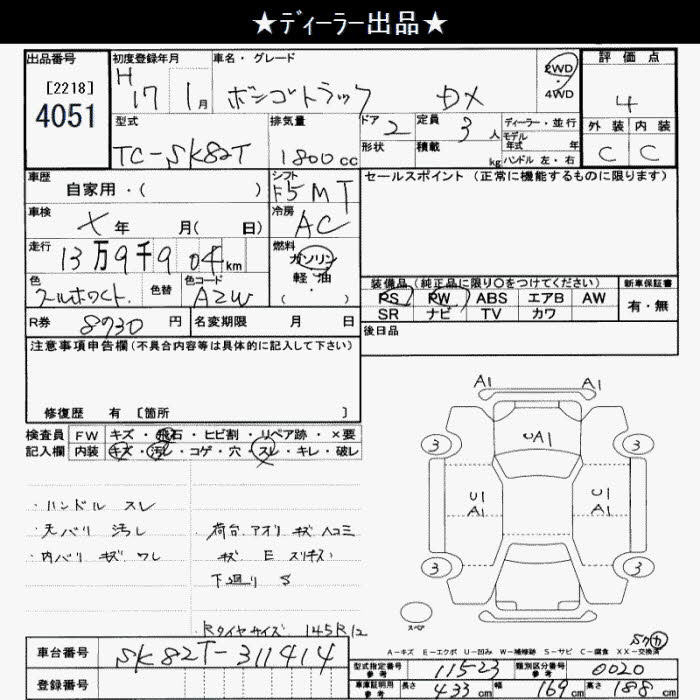 ★ディーラー出品★
出品番号 初度登録年月 車名・グレード 2WD 評価点
[2218] H 17 1月 ボンゴトラック DX 4WD 4
4051 型式 排気量 ドア 2 定員 3人 ディーラー・並行 外装 内装
TC-SK82T 1800cc 形状 積載 kg モデル年式 年 ハンドル 左・右 C C
車歴 自家用・( ) シフト F5MT セールスポイント(正常に機能するものに限ります)
車検 X年 月( 日) 冷房 AC
走行 13万9千904km 燃料 ガソリン
軽・油
( )
色 クールホワイト 色替 色コード A2W
装備品(純正品に限り○をつけてください) 新車保証書
PS PW ABS エアB AW 有・無
SR ナビ TV カワ
R券 8730円 名変期限 月 日 後日品
注意事項申告欄(不具合内容等は具体的に記入して下さい)
修復歴 有 [箇所 ]
検査員 FW キズ・飛石・ヒビ割・リペア跡・×要
記入欄 内装 キズ・汚レ・コゲ・穴・スレ・キレ・破レ
・ハンドル スレ
・天バリ 汚レ
・内バリ キズ ワレ
・荷台、アオリ キズ ヘコミ
キズ E スリキズ
下廻り S
・Rタイヤサイズ 145R12
A1 A1
3 UA1 3
U1 A1 U1 A1
3 3
スペア
Sク(カ)
A－キズ E－エクボ U－凹み W－補修跡 S－サビ C－腐食 XX－交換済
車台番号 SK82T-311414
型式指定番号 参考 11523 類別区分番号 参考 0020
登録番号
車庫証明用 参考 長さ 433cm 幅 169cm 高さ 188cm